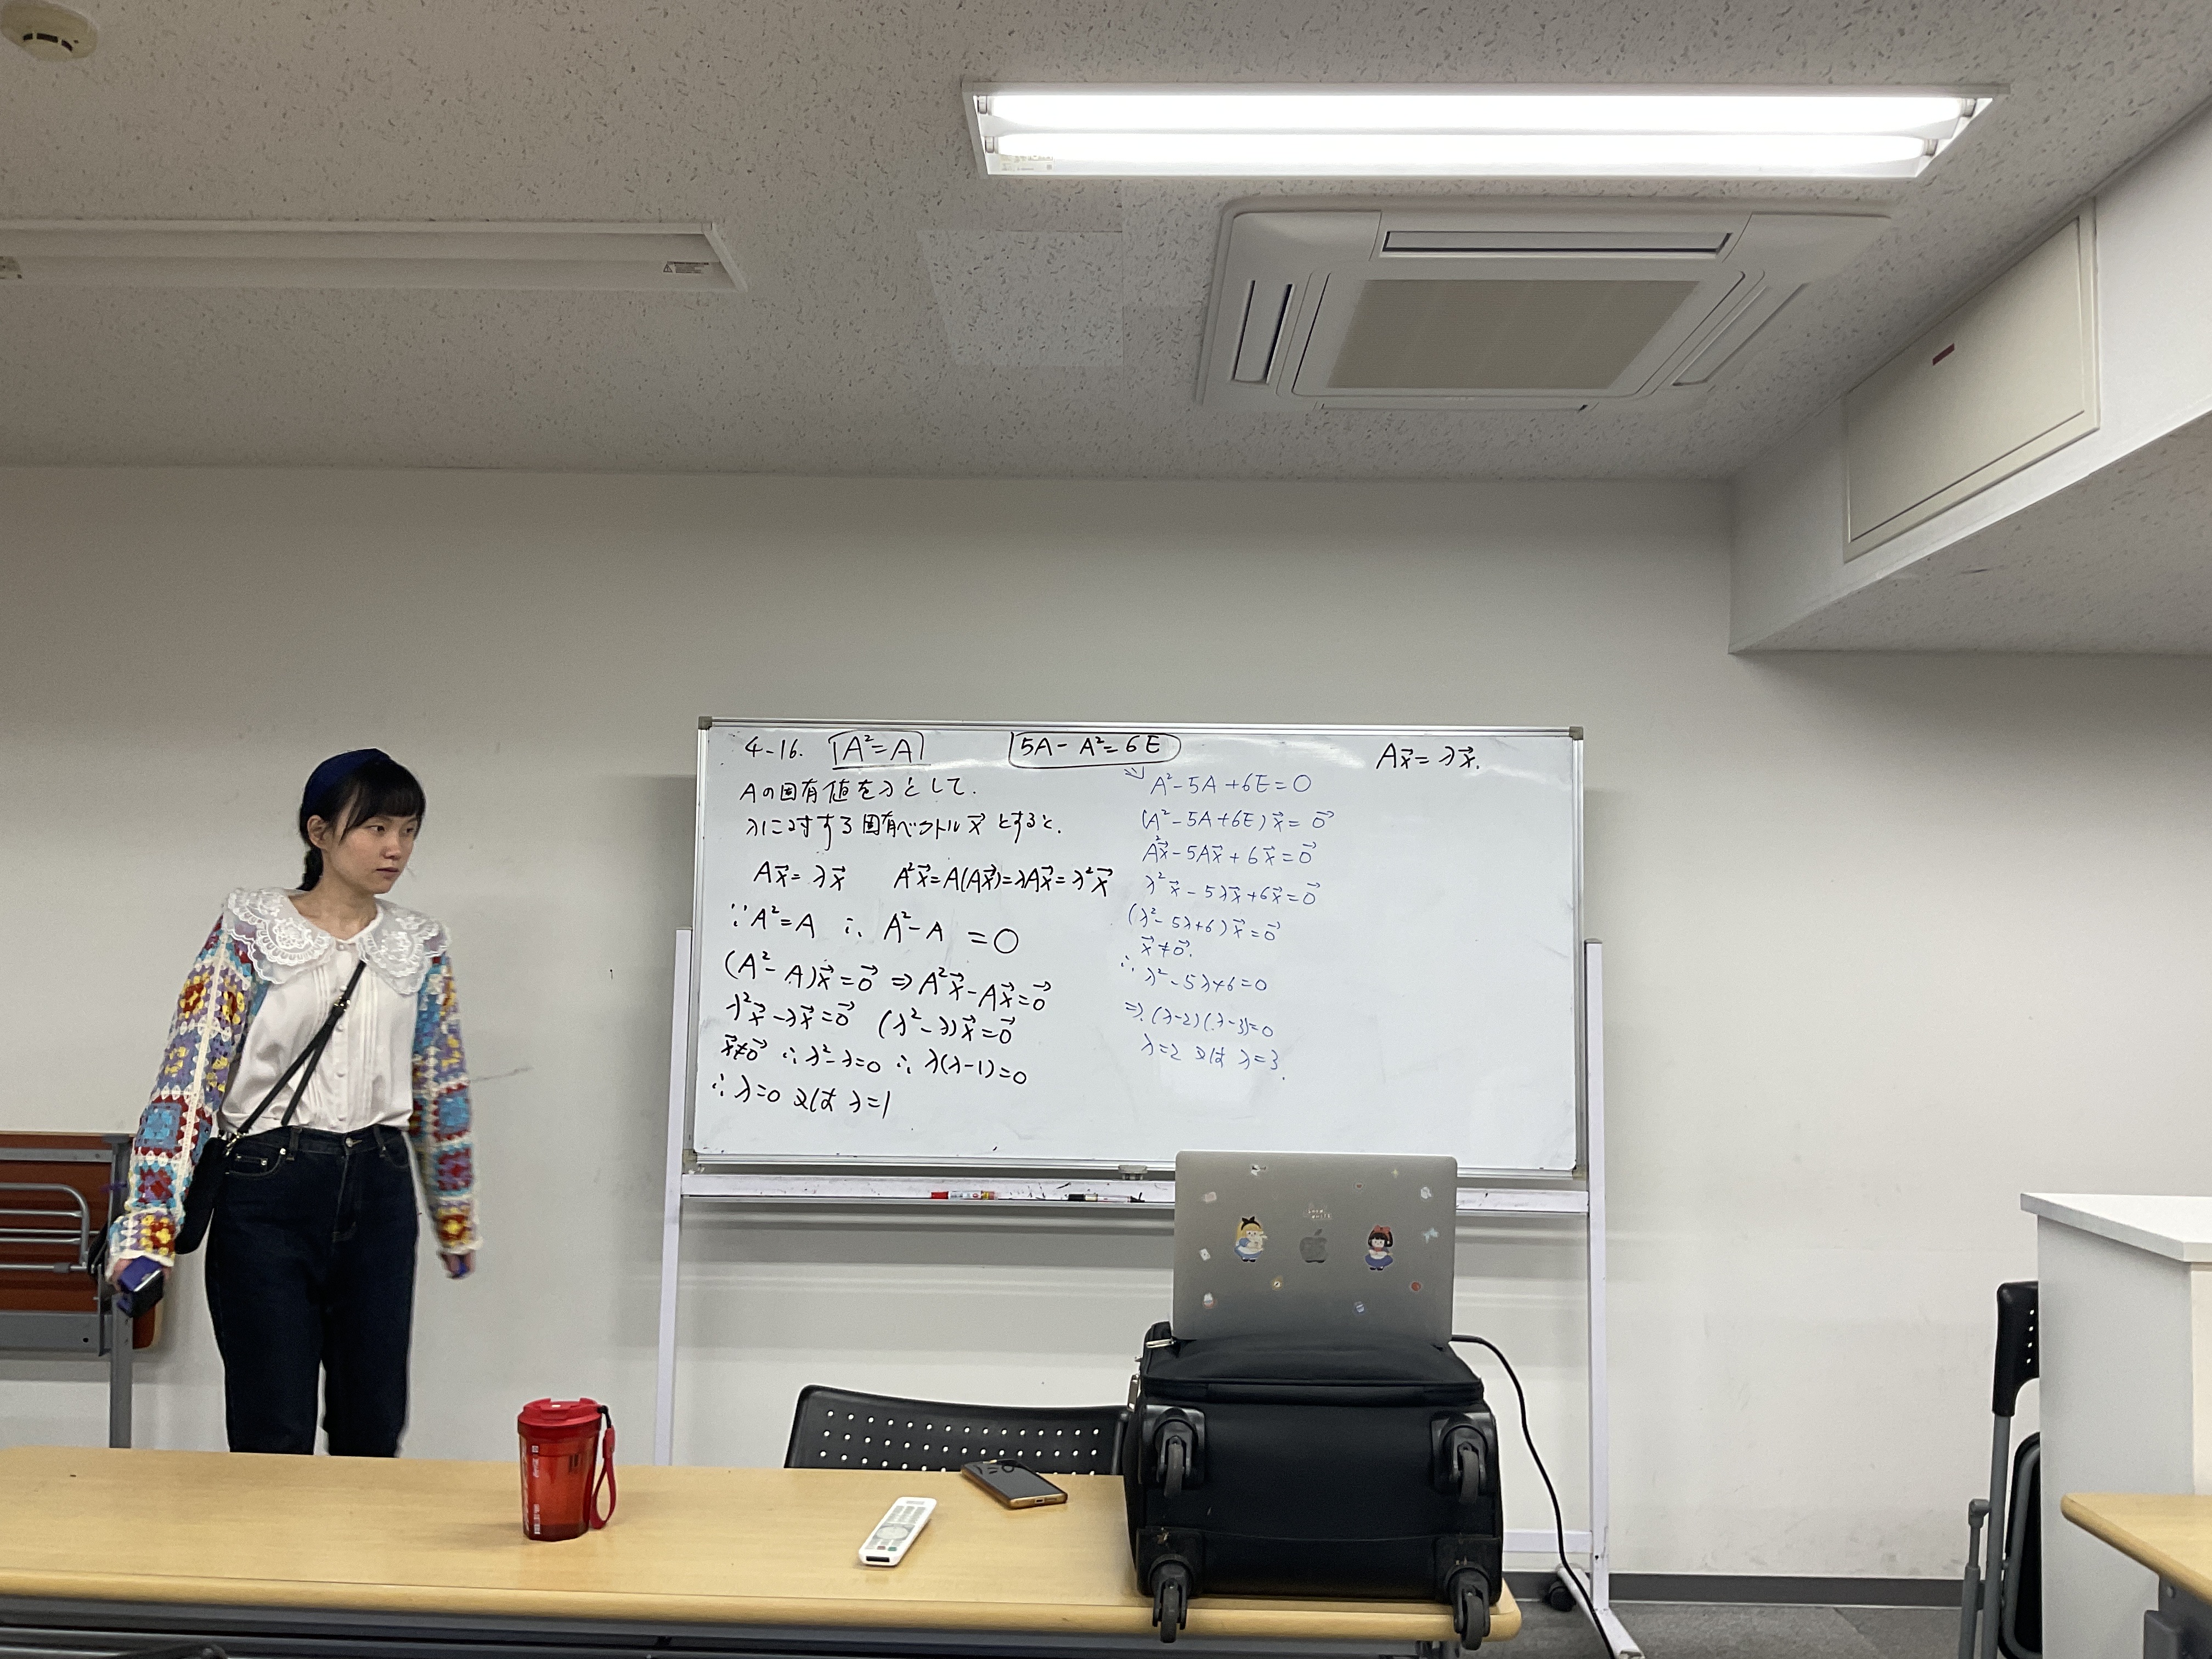 4-16. A²=A
Aの固有値をλとして.
λに対する固有ベクトルx⃗とすると.
Ax⃗=λx⃗ A²x⃗=A(Ax⃗)=λAx⃗=λ²x⃗
∵A²=A ∴ A²-A =O
(A²-A)x⃗=0⃗ ⇒A²x⃗-Ax⃗=0⃗
λ²x⃗-λx⃗=0⃗ (λ²-λ)x⃗=0⃗
x⃗≠0⃗ ∴λ²-λ=0 ∴λ(λ-1)=0
∴λ=0 又は λ=1
5A-A²=6E
A²-5A+6E=O
(A²-5A+6E)x⃗=0⃗
A²x⃗-5Ax⃗+6x⃗=0⃗
λ²x⃗-5λx⃗+6x⃗=0⃗
(λ²-5λ+6)x⃗=0⃗
x⃗≠0⃗.
∴λ²-5λ+6=0
⇒.(λ-2)(λ-3)=0
λ=2 又は λ=3.
Ax⃗=λx⃗.